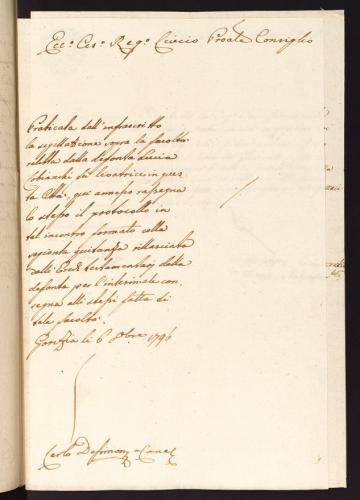 Ecc.o Ces.o Reg.o Civico Proāle Consiglio
Praticata dall'infrascritto
la sigillazione sopra la facoltà
relitta dalla defonta Lucia
levatrice in ques
ta Città, qui annesso rassegna
lo stesso il protocollo in
tal incontro formato colla
quitanza rillasciata
dalli Eredi testamentarj della
defonta per l'interinale con,
segna alli stessi fatta di
tale facoltà.
Gorizia li 6 8bre 1796
Carlo